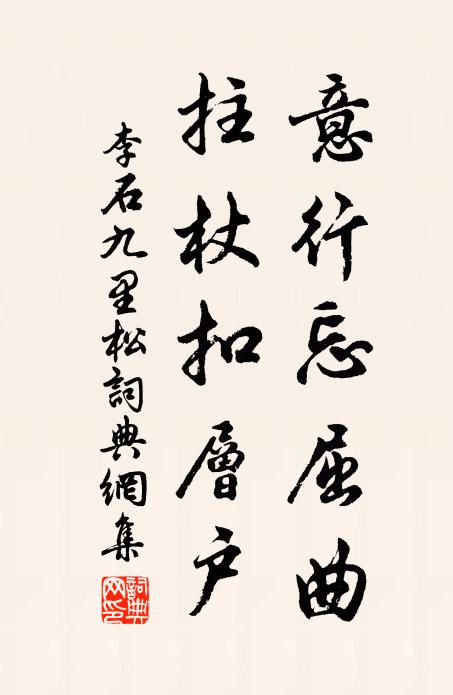 意行忘屈曲
拄杖扣層戶
李石九里松詞典網集
詞典網印